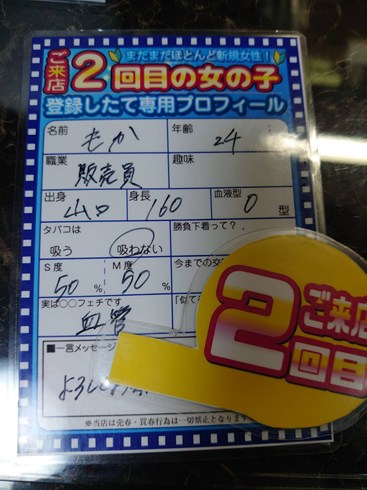 まだまだほとんど新規女性!
ご来店2回目の女の子
登録したて専用プロフィール
名前 もか 年齢 24
職業 販売員 趣味
出身 山口 身長 160 血液型 O 型
タバコは 勝負下着って?
吸う 吸わない
S度 M度 今までの交
50% 50%
実は○○フェチです 「似てる
血管
■一言メッセージ
よろしく
※当店は売春・買春行為は一切禁止となります
ご来店
2回目